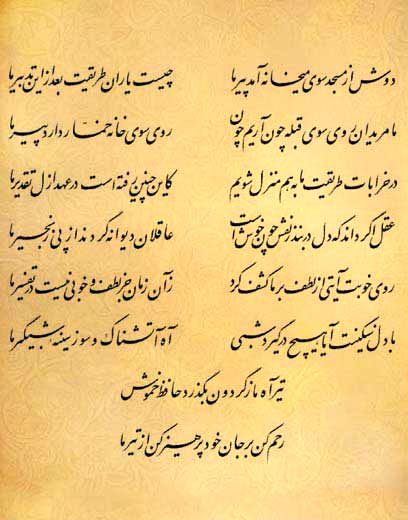 دوش از مسجد سوی میخانه آمد پیر ما چیست یاران طریقت بعد از این تدبیر ما
ما مریدان روی سوی قبله چون آریم چون روی سوی خانه خمار دارد پیر ما
در خرابات طریقت ما به هم منزل شویم کاین چنین رفته است در عهد ازل تقدیر ما
عقل اگر داند که دل در بند زلفش چون خوش است عاقلان دیوانه گردند از پی زنجیر ما
روی خوبت آیتی از لطف بر ما کشف کرد زآن زمان جز لطف و خوبی نیست در تفسیر ما
با دل سنگینت آیا هیچ درگیرد شبی آه آتشناک و سوز سینه شبگیر ما
تیر آه ما ز گردون بگذرد حافظ خموش
رحم کن بر جان خود پرهیز کن از تیر ما